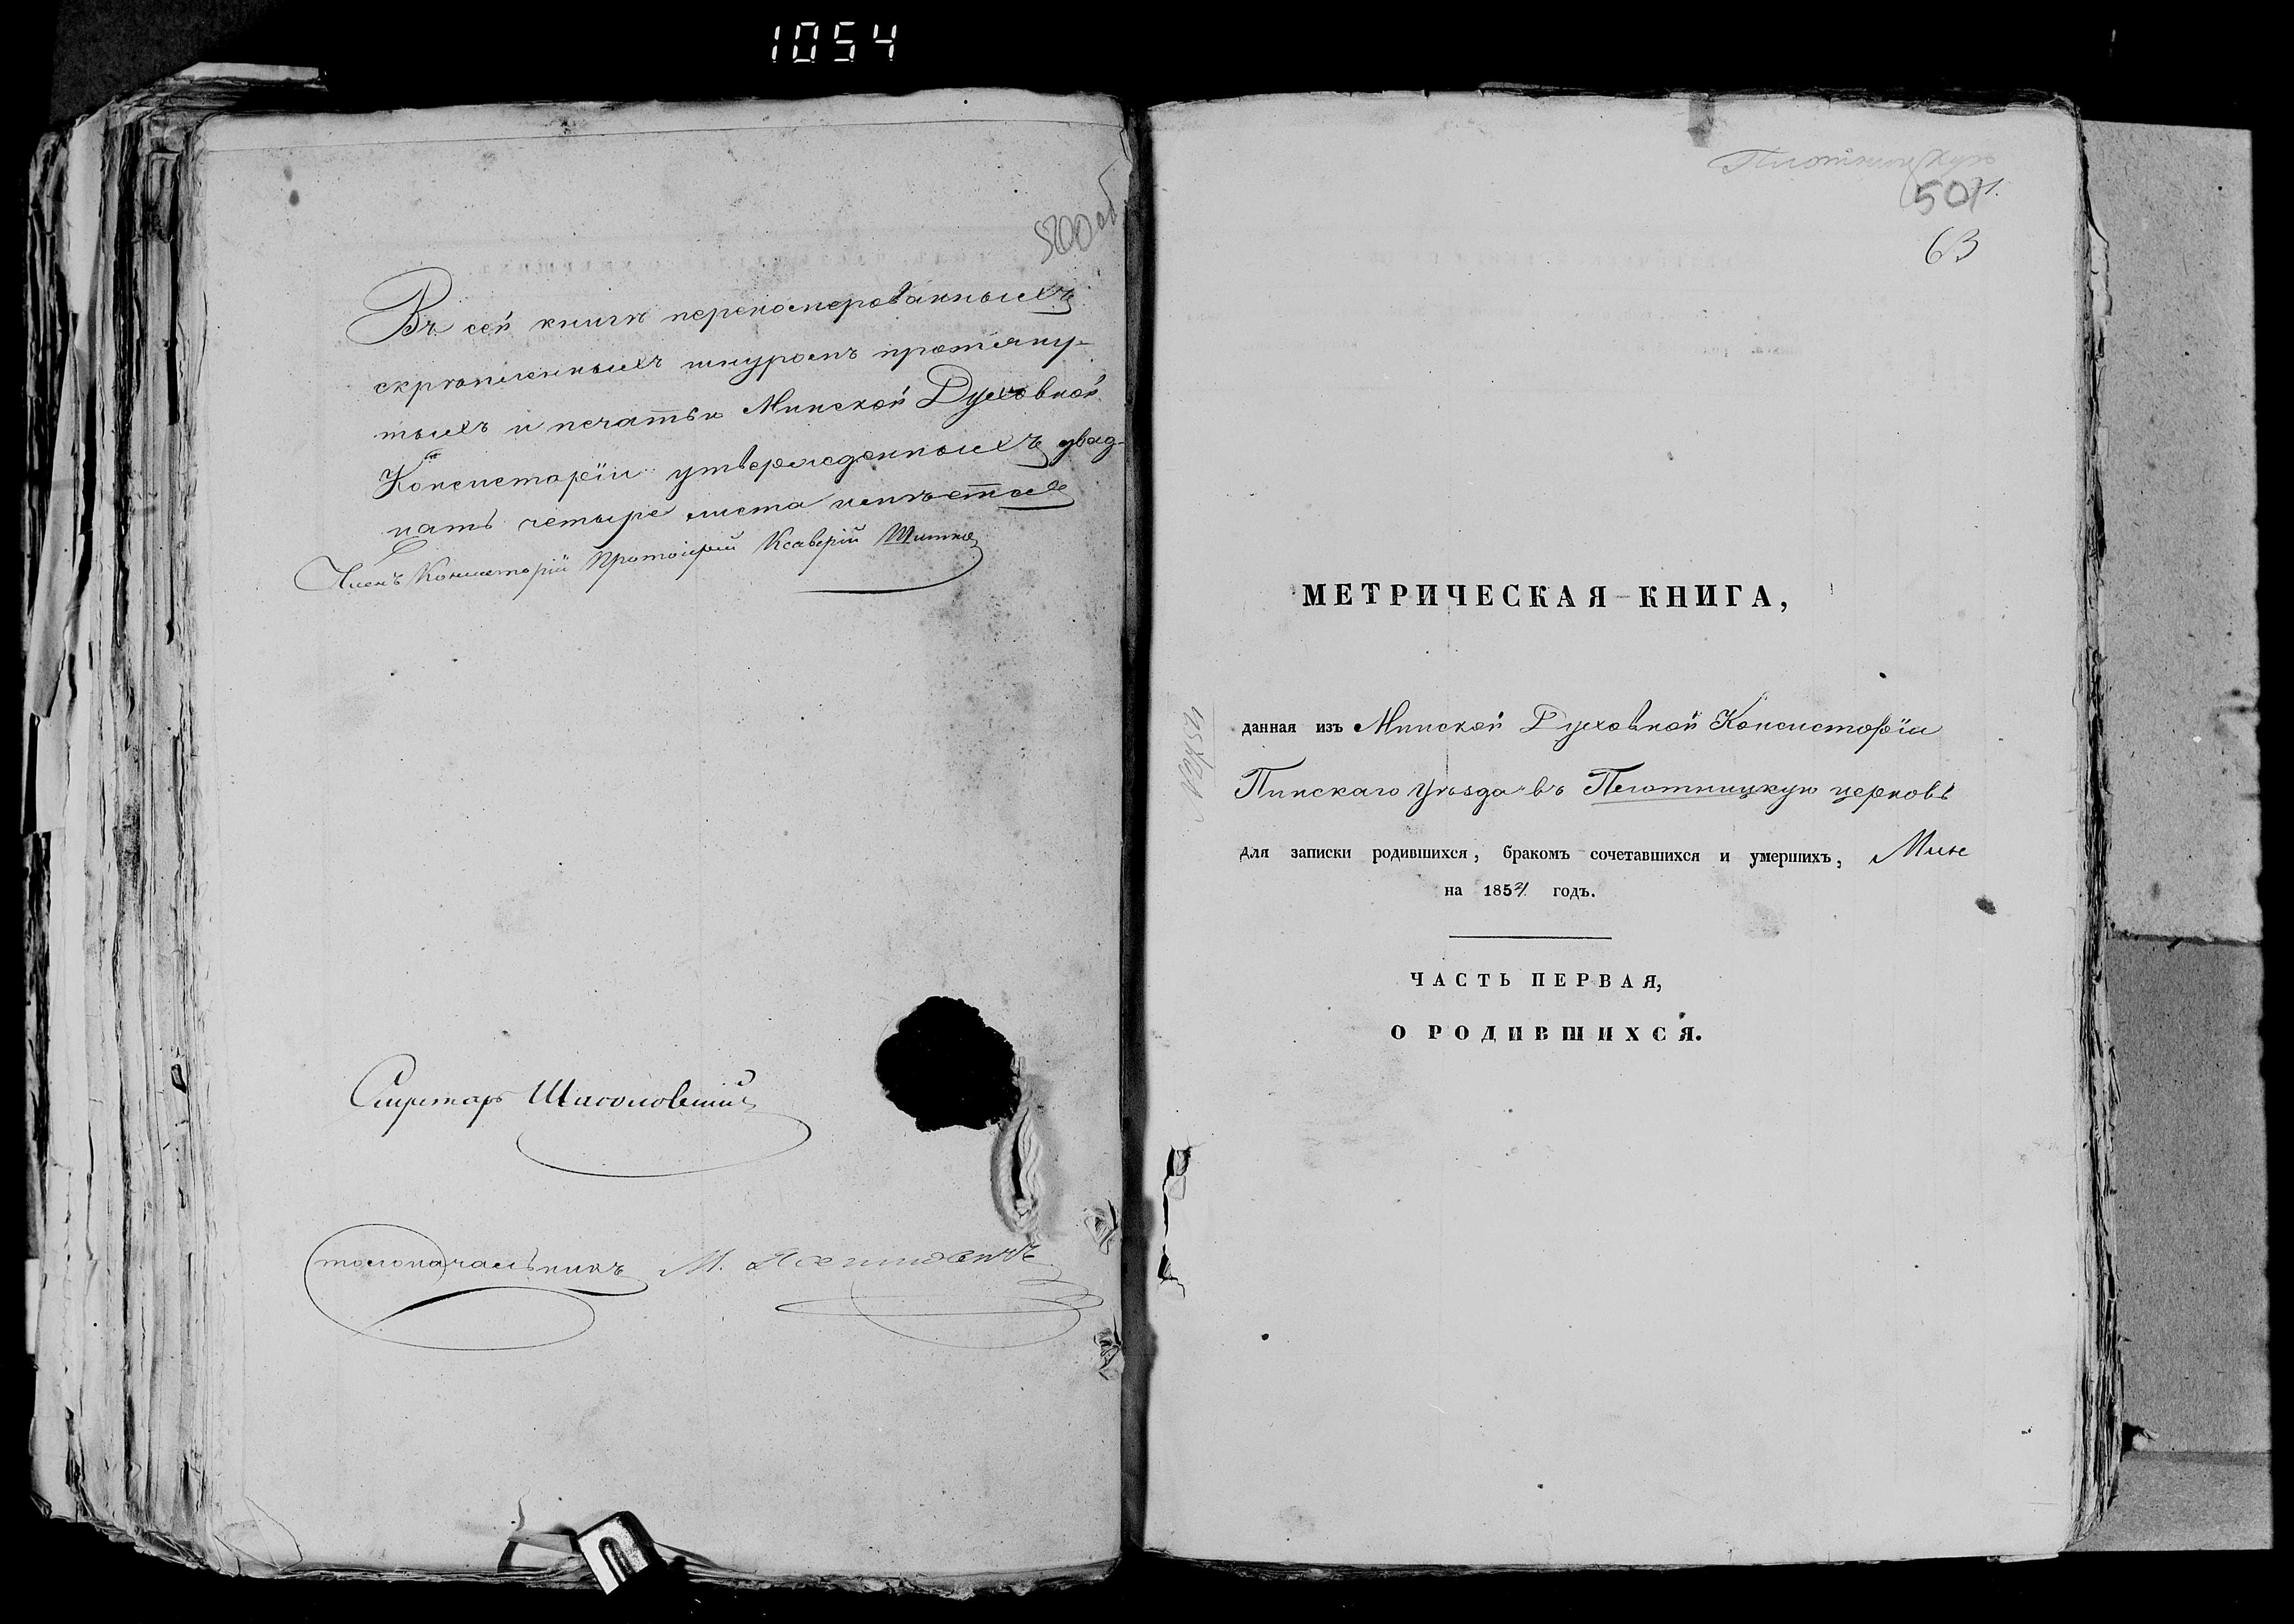 1054
500об
Въ сей книгѣ переномерованныхъ
скрѣпленныхъ шнуромъ протяну-
тыхъ и печатью Минской Духовной
Консисторіи утвержденныхъ двад-
цать четыре листа
Членъ Консисторіи Протоіерей Ксаверій
Секретарь
Столоначальникъ М.
Плотницкую
501
63
МЕТРИЧЕСКАЯ КНИГА,
данная изъ Минской Духовной Консисторіи
Пинскаго Уѣзда въ Плотницкую церковь
для записки родившихся, бракомъ сочетавшихся и умершихъ,
на 185 годъ.
ЧАСТЬ ПЕРВАЯ,
О РОДИВШИХСЯ.